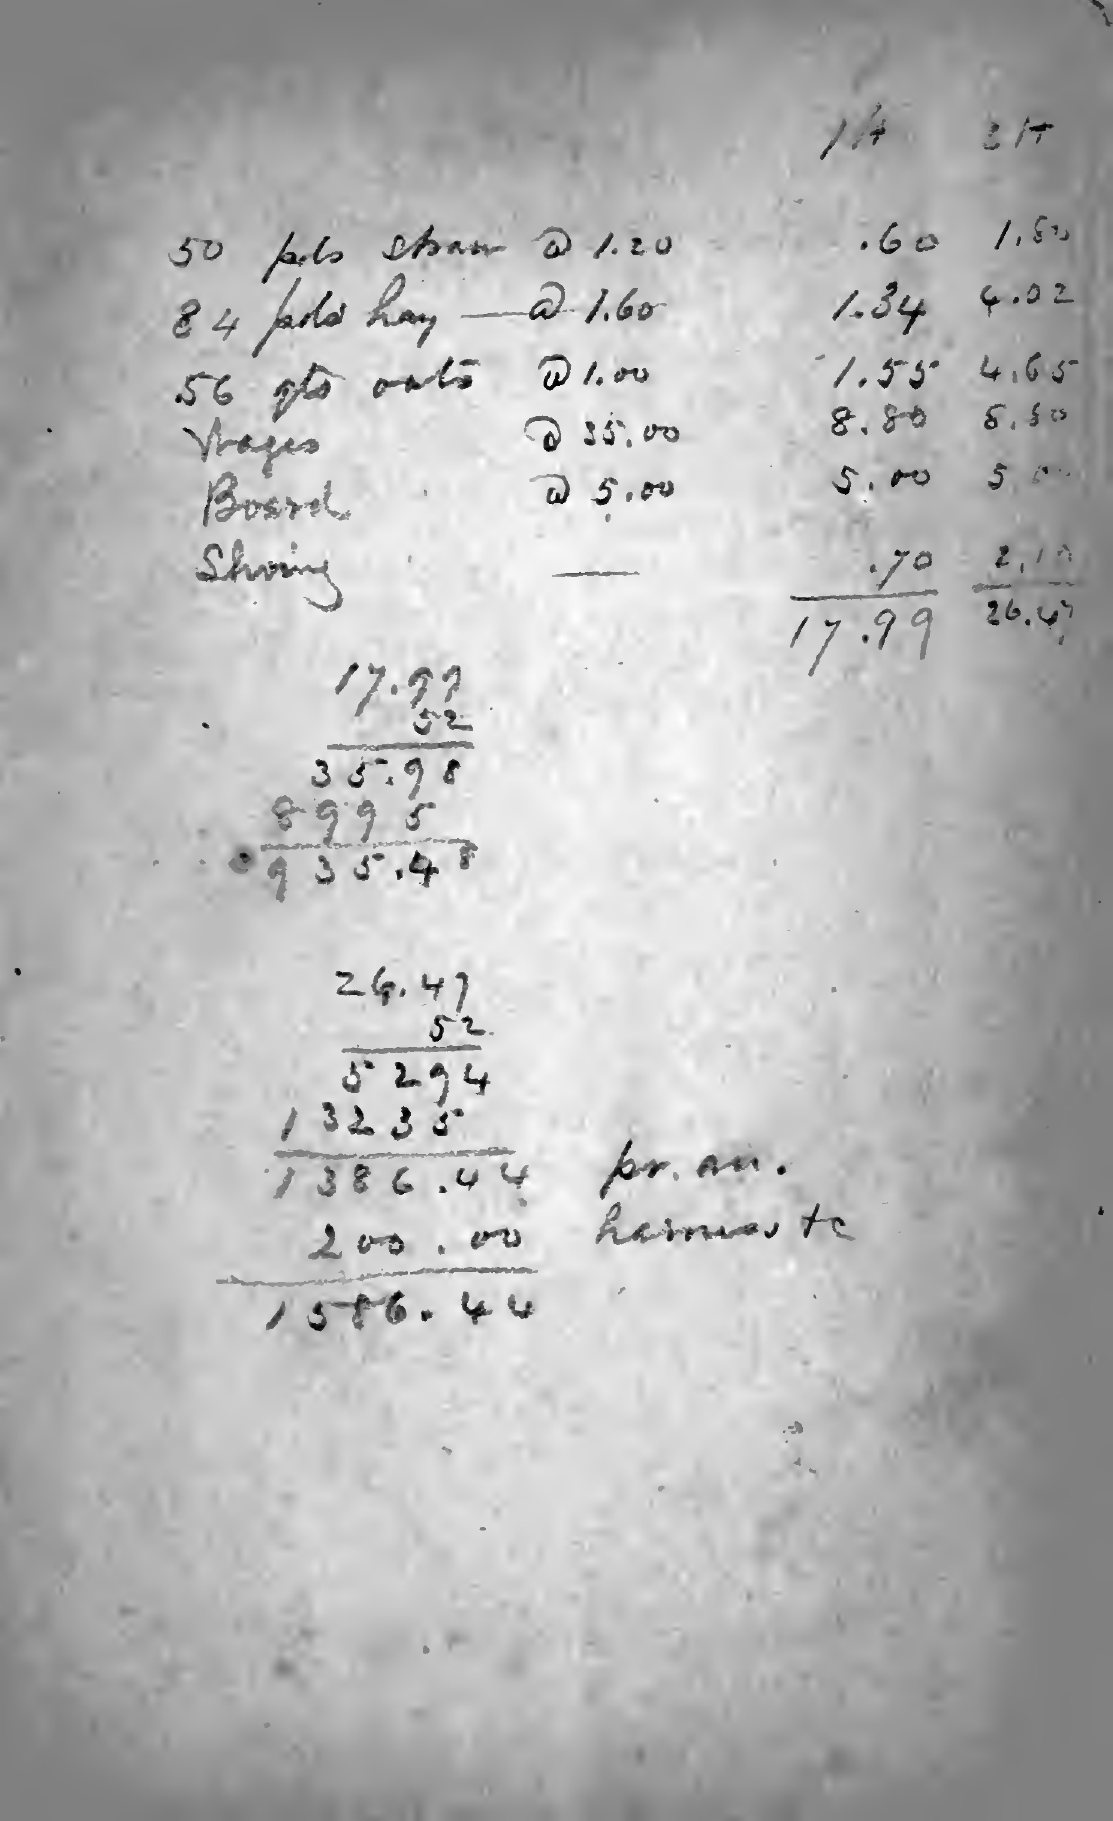 1 H 3 H
50 pds straw @ 1.20 .60 1.80
84 pds hay — @ 1.60 1.34 4.02
56 qts oats @ 1.00 1.55 4.65
Wages @ 35.00 8.80 8.80
Board @ 5.00 5.00 5.00
Shoeing — .70 2.10
17.99 26.47
17.99
52
35.98
8995
935.48
26.47
52
5294
13235
1386.44 pr. an.
200.00 harness &c
1586.44